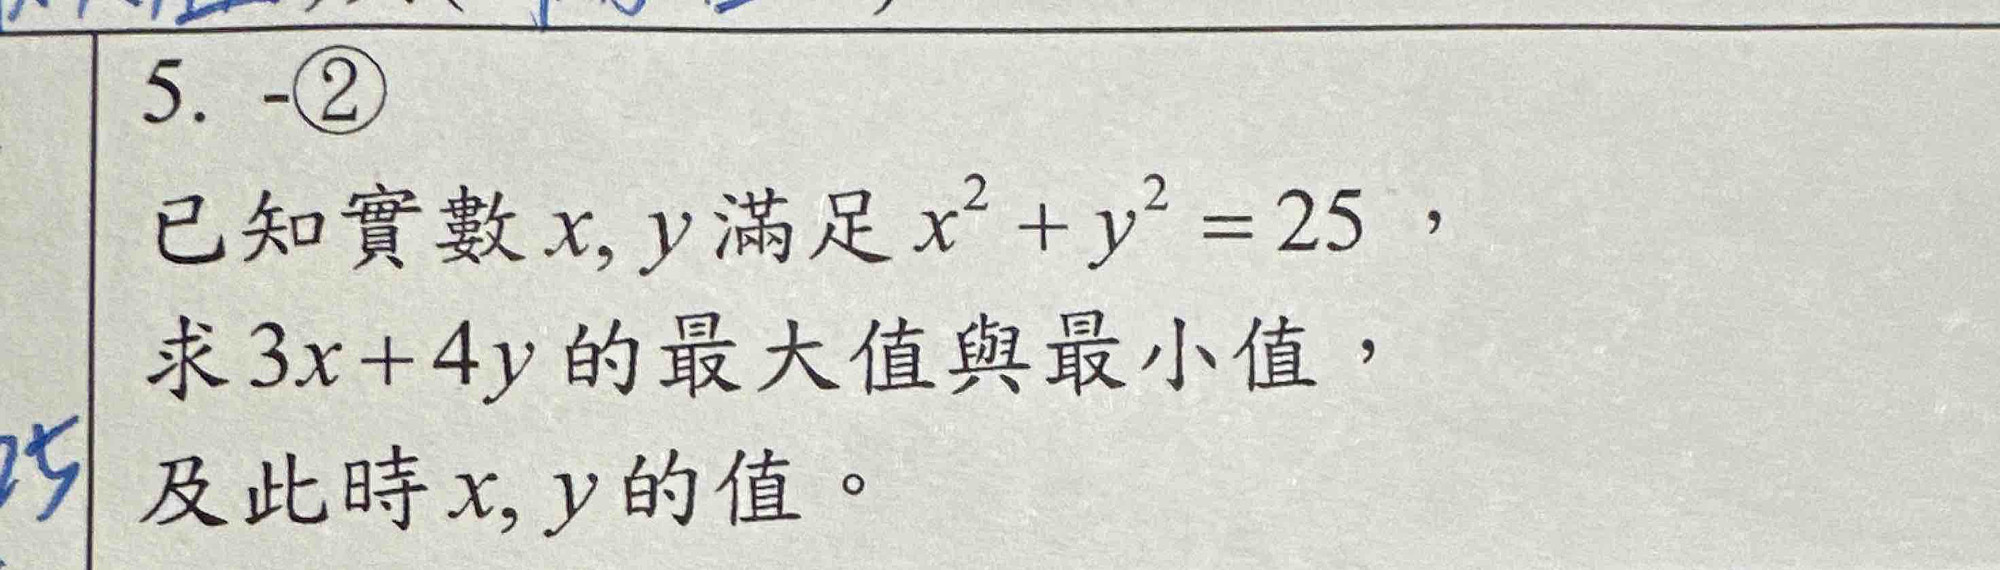 5. -②
已知實數 x, y 滿足 x² + y² = 25，
求 3x + 4y 的最大值與最小值，
及此時 x, y 的值。
25